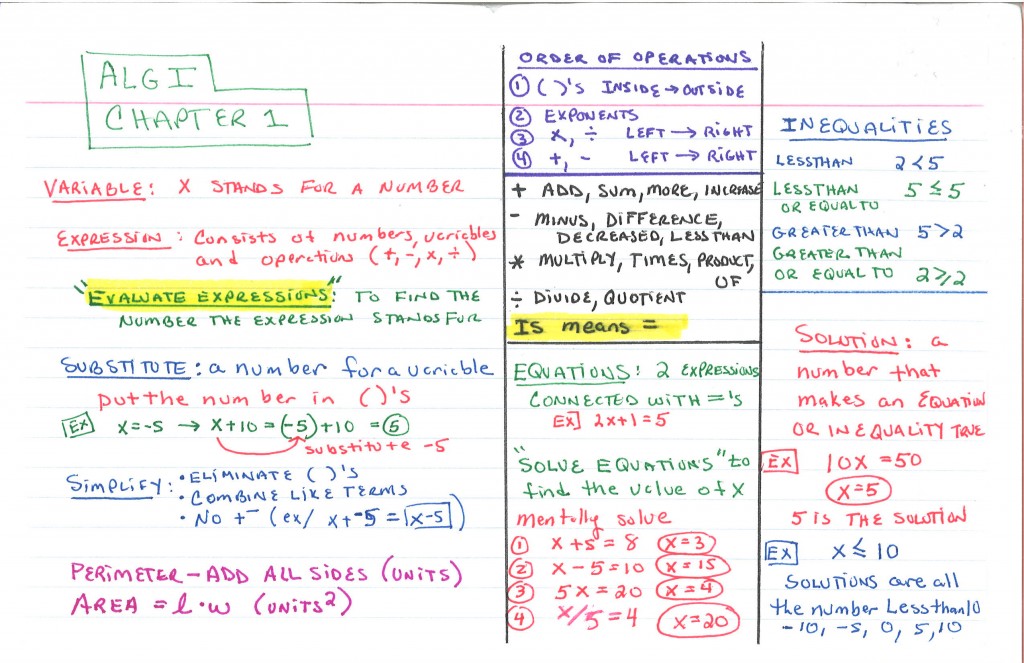 ALG I
CHAPTER 1
VARIABLE: X STANDS FOR A NUMBER
EXPRESSION: Consists of numbers, variables
and operation (+, -, x, ÷)
"EVALUATE EXPRESSIONS": TO FIND THE
NUMBER THE EXPRESSION STANDS FOR
SUBSTITUTE: a number for a variable
put the number in ( )'S
EX x=-5 → x+10 = (-5)+10 = 5
substitute -5
SIMPLIFY: • ELIMINATE ( )'S
• COMBINE LIKE TERMS
• NO +- (ex/ x+-5 = x-5)
PERIMETER - ADD ALL SIDES (UNITS)
AREA = l·w (UNITS²)
ORDER OF OPERATIONS
① ( )'S INSIDE → OUTSIDE
② EXPONENTS
③ x, ÷ LEFT → RIGHT
④ +, - LEFT → RIGHT
+ ADD, SUM, MORE, INCREASE
- MINUS, DIFFERENCE,
DECREASED, LESS THAN
* MULTIPLY, TIMES, PRODUCT,
OF
÷ DIVIDE, QUOTIENT
IS means =
EQUATIONS: 2 EXPRESSIONS
CONNECTED WITH ='S
EX] 2x+1=5
"SOLVE EQUATIONS" to
find the value of X
mentally solve
① x+5=8 x=3
② x-5=10 x=15
③ 5x=20 x=4
④ x/5=4 x=20
INEQUALITIES
LESSTHAN 2<5
LESSTHAN 5≤5
OR EQUAL TO
GREATER THAN 5>2
GREATER THAN
OR EQUAL TO 2≥2
SOLUTION: a
number that
makes an EQUATION
OR INEQUALITY TRUE
EX 10x=50
x=5
5 IS THE SOLUTION
EX x≤10
SOLUTIONS are all
the number Less than 10
-10, -5, 0, 5, 10